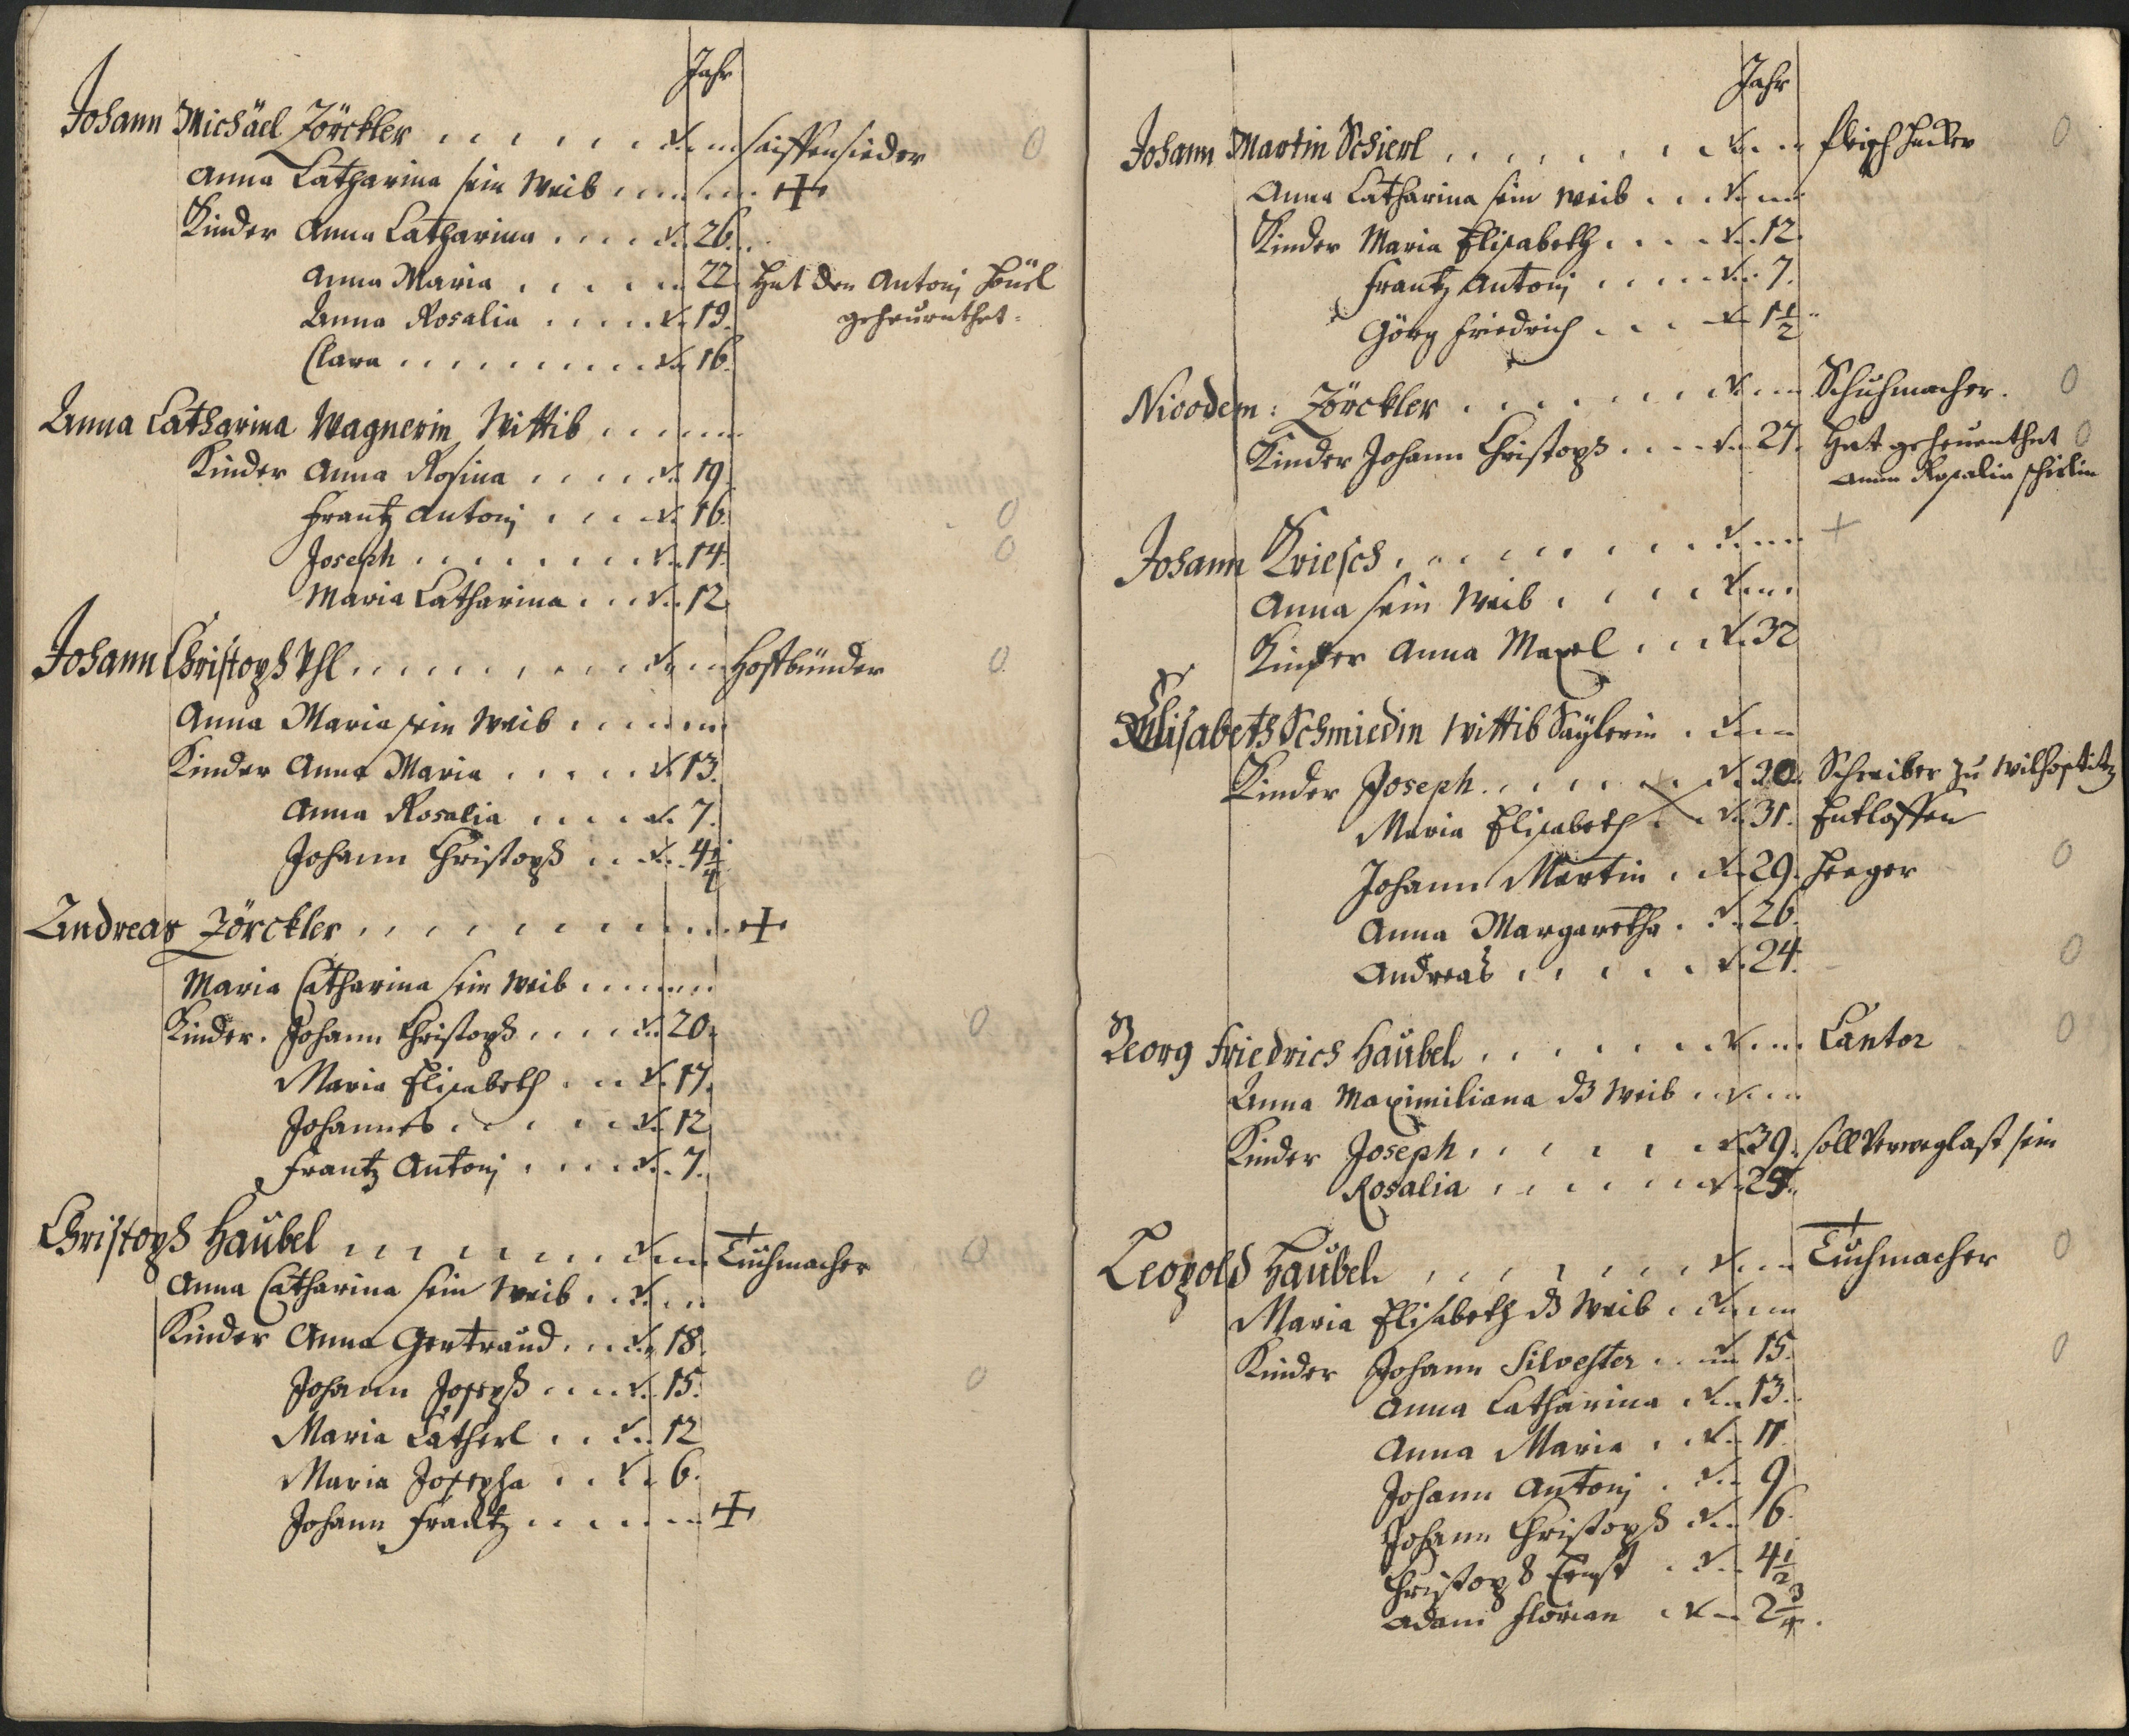 Jahr
Johann Michäel Jörckler Saiffensieder 0
Anna Catharina sein Weib +
Kinder Anna Catharina 26.
Anna Maria 22 Hat den Antonj
geheurathet
Anna Rosalia 19.
Clara 16.
Anna Catharina Wagnerin Wittib
Kinder Anna Rosina 19
Frantz Antonj 16. 0
Joseph 14. 0
Maria Catharina 12
Johann Christoph Ihl Hoffbünder 0
Anna Maria sein Weib
Kinder Anna Maria 13.
Anna Rosalia 7.
Johann Christoph 4 1/4
Andreas Jörckler +
Maria Catharina sein Weib
Kinder. Johann Christoph 20. 0
Maria Elisabeth 17.
Johannes 12
Frantz Antonj 7.
Christoph Haübel + Tuchmacher 0
Anna Catharina sein Weib
Kinder Anna Gertraud 18.
Johann Joseph 15. 0
Maria Catherl 12
Maria Josepha 6.
Johann Frantz +
Jahr
Johann Martin Schierl Fleischhacker 0
Anna Catharina sein Weib
Kinder Maria Elisabeth 12.
Frantz Antonj 7.
Görg Friedrich 1 1/2
Nicodem: Jörckler Schuhmacher. 0
Kinder Johann Christoph 27. Hat geheurathet 0
Anna Rosalia Schirlin
Johann Kriesch +
Anna sein Weib
Kinder Anna Mariel 32
Elisabeth Schmiedin Wittib Saÿlerin
Kinder Joseph 30. Schreiber zu
Maria Elisabeth 31. Entloffen
Johann Martin 29. Heeger 0
Anna Margaretha 26.
Andreas 24. 0
Georg Friedrich Haübel Cantor 0
Anna Maximiliana ds Weib
Kinder Joseph 39. soll sein
Rosalia 25.
Leopold Haübel + Tuchmacher 0
Maria Elisabeth ds Weib
Kinder Johann Silvester 15. 0
Anna Catharina 13.
Anna Maria 11.
Johann Antonj 9
Johann Christoph 6.
Christoph Ernst 4 1/2
Adam Florian 2 3/4.